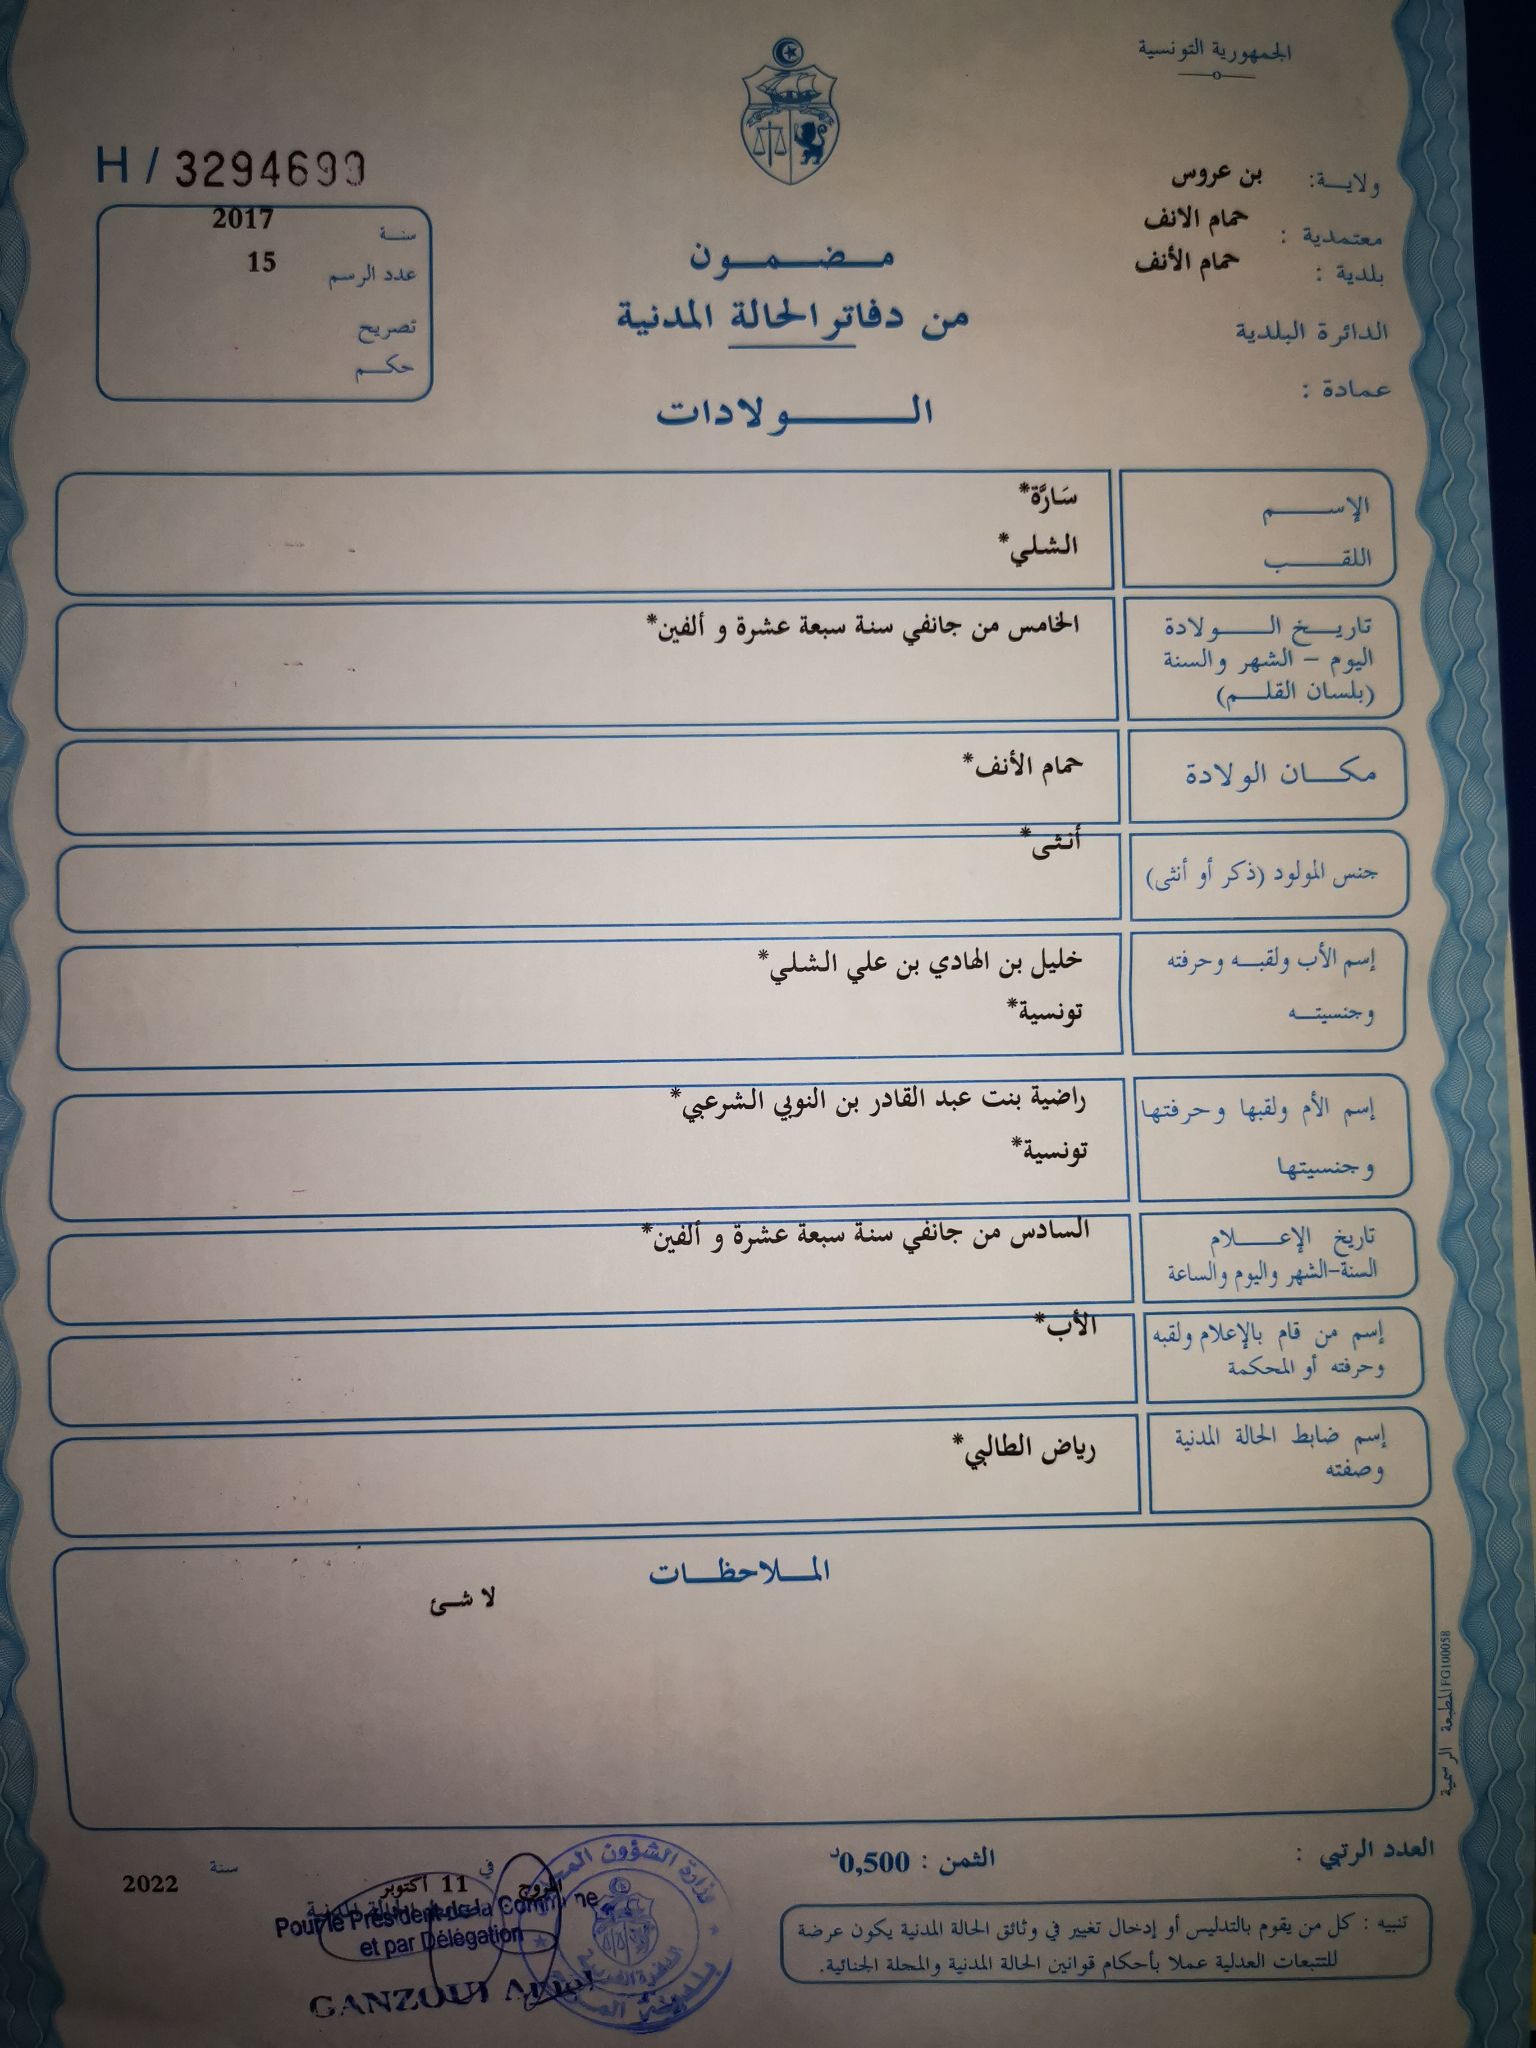 الجمهورية التونسية
H / 3294699
ولايـة: بن عروس
معتمدية : حمام الانف
بلدية : حمام الأنف
الدائرة البلدية
عمادة :
سنة 2017
عدد الرسم 15
تصريح
حكم
مضمون
من دفاتر الحالة المدنية
الولادات
الإسم سَارَّة*
اللقب الشلي*
تاريخ الولادة الخامس من جانفي سنة سبعة عشرة و ألفين*
اليوم - الشهر والسنة
(بلسان القلم)
مكان الولادة حمام الأنف*
جنس المولود (ذكر أو أنثى) أنثى*
إسم الأب ولقبه وحرفته خليل بن الهادي بن علي الشلي*
وجنسيته تونسية*
إسم الأم ولقبها وحرفتها راضية بنت عبد القادر بن النوبي الشرعبي*
وجنسيتها تونسية*
تاريخ الإعلام السادس من جانفي سنة سبعة عشرة و ألفين*
السنة-الشهر واليوم والساعة
إسم من قام بالإعلام ولقبه الأب*
وحرفته أو المحكمة
إسم ضابط الحالة المدنية رياض الطالبي*
وصفته
الملاحظات
لا شئ
المطبعة الرسمية FG100058
العدد الرتبي :
الثمن : 0,500د
تنبيه : كل من يقوم بالتدليس أو إدخال تغيير في وثائق الحالة المدنية يكون عرضة
للتتبعات العدلية عملا بأحكام قوانين الحالة المدنية والمجلة الجنائية.
المروج في 11 أكتوبر سنة 2022
Pour le Président de la Commune
et par Délégation
GANZOUI
وزارة الشؤون